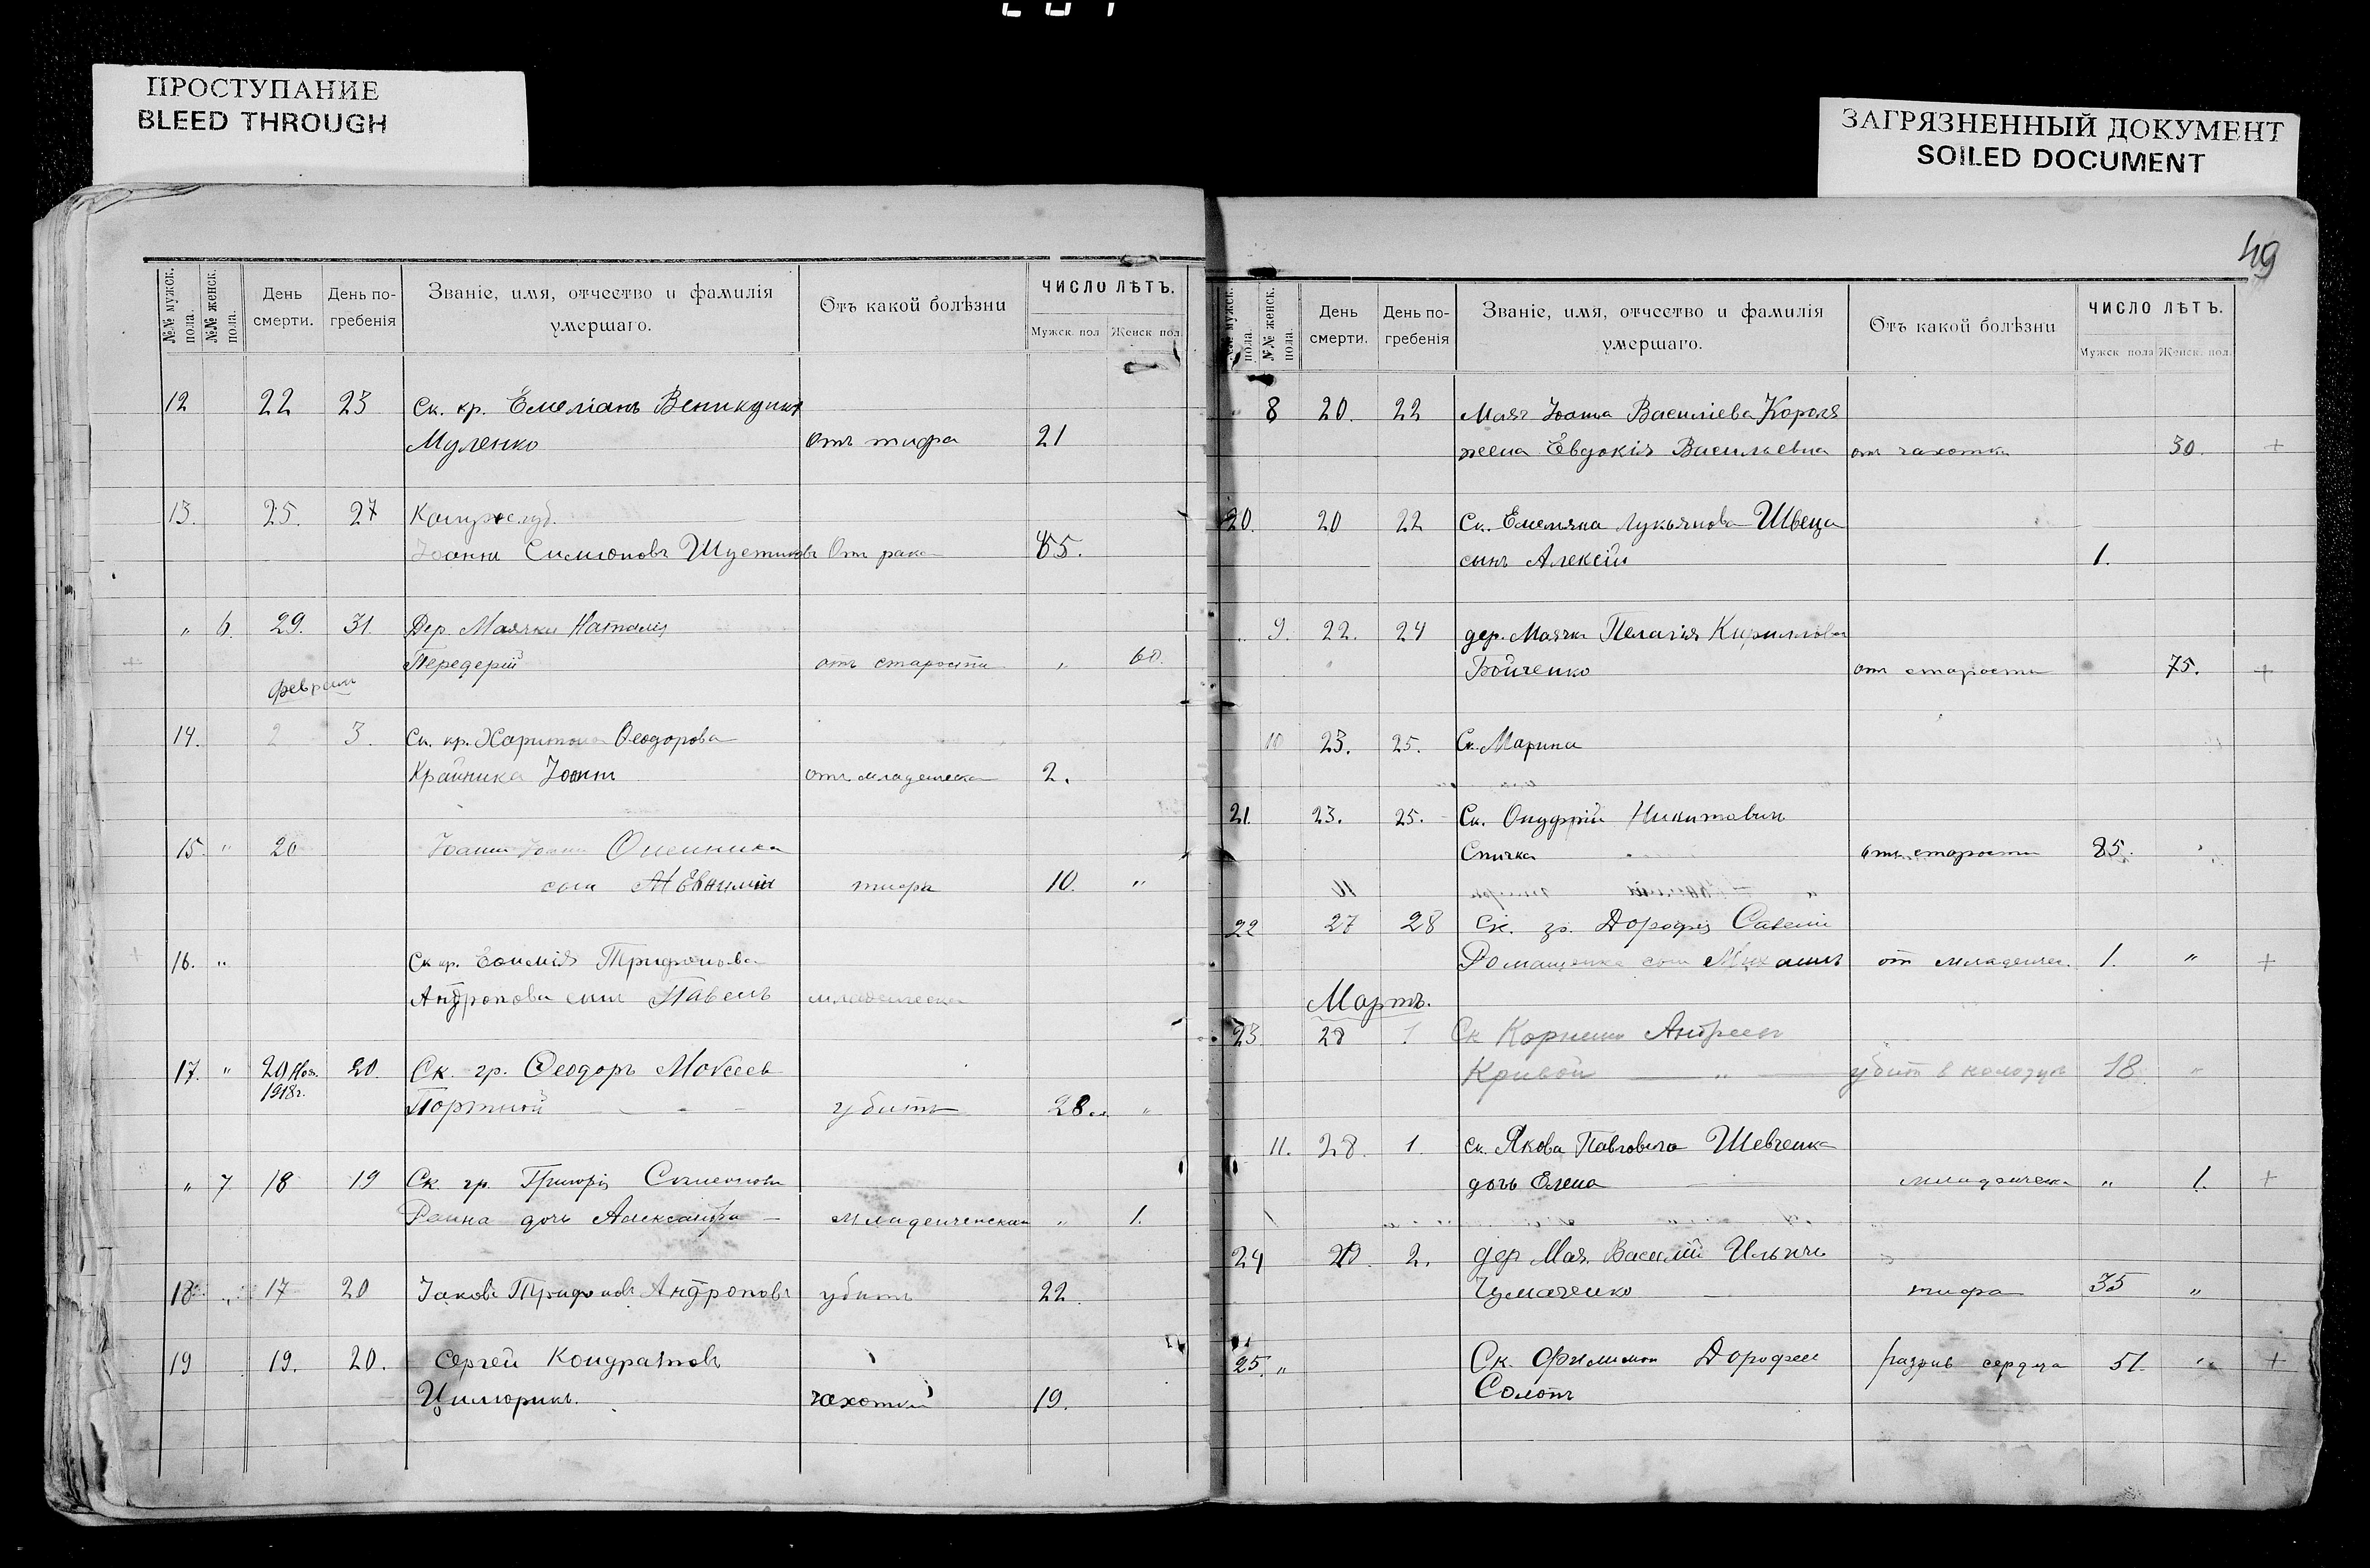 ПРОСТУПАНИЕ
BLEED THROUGH
ЗАГРЯЗНЕННЫЙ ДОКУМЕНТ
SOILED DOCUMENT
№№ мужск. пола.
№№ женск. пола.
День смерти.
День по-гребенія
Званіе, имя, отчество и фамилія
умершаго.
Отъ какой болѣзни
ЧИСЛО ЛѢТЪ.
Мужск. пол Женск. пол.
12 22 23 Ск. кр. Емеліанъ
Муленко отъ тифа 21
13. 25. 27
Іоаннъ Симіоновъ Отъ рака 85.
„ 6. 29. 31. Дер. Маячки Наталія
Передерій отъ старости „ 60.
февраль
14. 2 3. Ск. кр. Харитона Ѳеодорова
Крайника Іоаннъ отъ младенческа 2.
15. „ 20 Іоанна
сынъ тифа 10. „
16. „ Ск кр. Трифонова
Андропова сынъ Павелъ младенческая
17. „ 20 Ноя. 20 Ск. гр. Ѳеодоръ Мокеев
1918г.
Портной убитъ 28 „
„ 7 18 19 Ск. гр. Григорія Симеонова
дочь Александра младенческая „ 1.
18 „ 17 20 Іаковъ Трифоновъ Андроповъ убитъ 22
19 19. 20. Сергей Кондратовъ
Циморикъ. чахотки 19.
49
№№ мужск. пола.
№№ женск. пола.
День смерти.
День по-гребенія
Званіе, имя, отчество и фамилія
умершаго.
Отъ какой болѣзни
ЧИСЛО ЛѢТЪ.
Мужск пола Женск. пол.
8 20. 22 Маяч Іоана Василіева Короля
жена Евдокія Васильевна отъ чахотки 30. +
20. 20 22 Ск. Емельяна Лукьянова Швеца
сынъ Алексѣй 1.
„ 9. 22. 24 дер. Маячки Пелагія Кириллова
Бойченко отъ старости 75. +
10 23. 25. Ск. Марина
21. 23. 25. Ск. Онуфрій Никитовичъ
Спичка отъ старости 85.
22 27 28 Ск. гр. Дорофія Савелій
Ромащенка сынъ Михаилъ от младенчес. 1. „ +
Мартъ.
23 28 1 Ск Корнилій Андреев
Кривой „ убит в колодце 18 „
11. 28. 1. Ск. Якова Павловича Шевченка
дочь Елена младенческа „ 1. +
24 2. дер Мая. Василій Ильичъ
Чумаченко тифа 35 „
25. „ Ск. Филимон Дорофее разрыв сердца 51. „ +